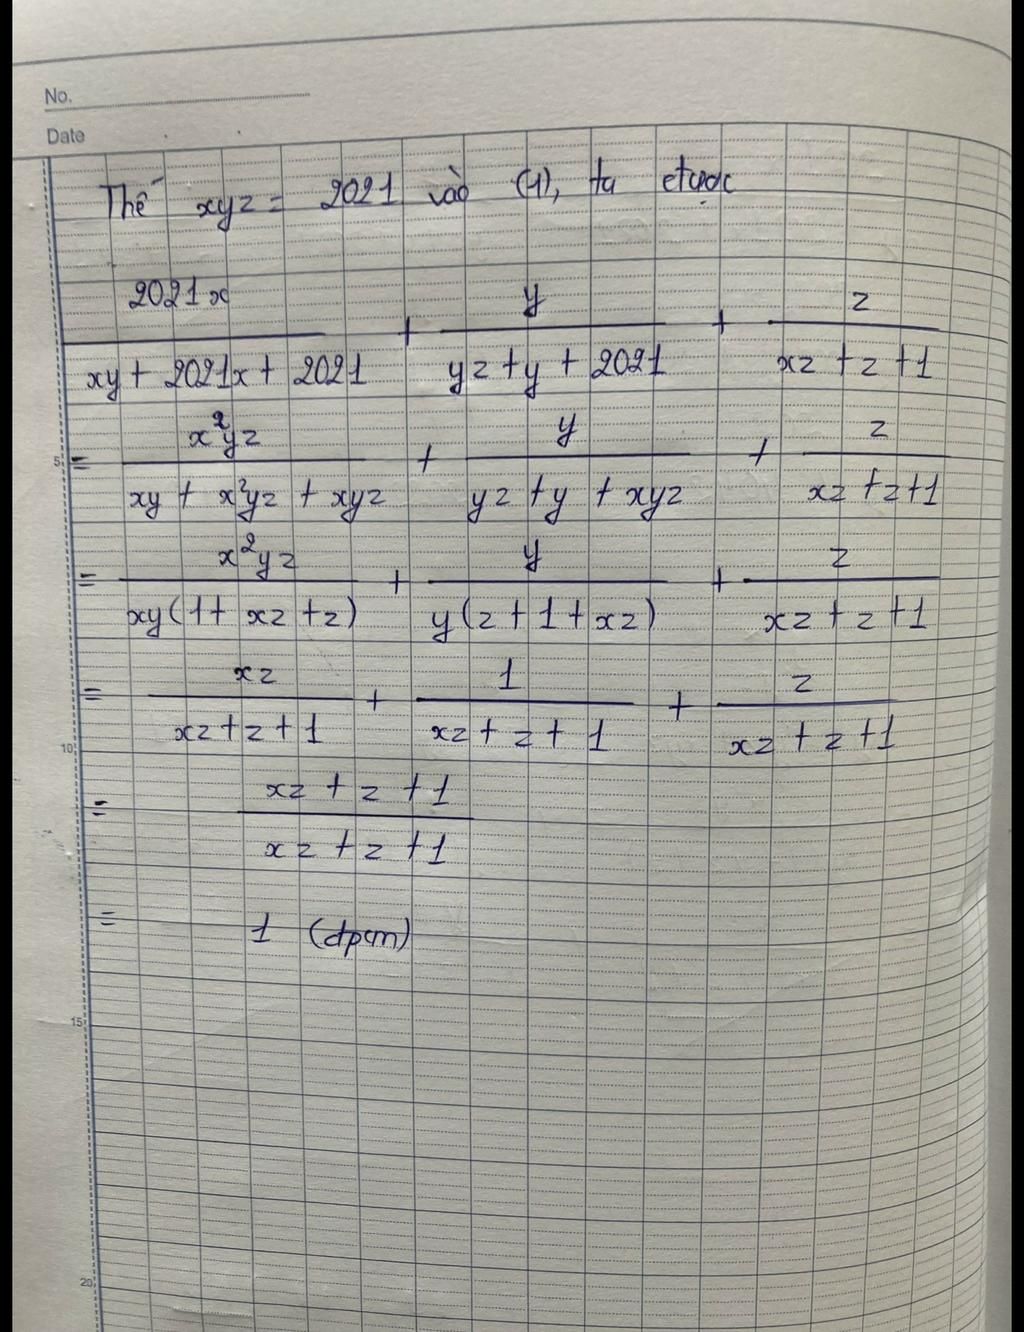 No.
Date
Thế xyz = 2021 vào (1), ta được
2021x / (xy + 2021x + 2021) + y / (yz + y + 2021) + z / (xz + z + 1)
5 = x²yz / (xy + x²yz + xyz) + y / (yz + y + xyz) + z / (xz + z + 1)
= x²yz / (xy(1 + xz + z)) + y / (y(z + 1 + xz)) + z / (xz + z + 1)
= xz / (xz + z + 1) + 1 / (xz + z + 1) + z / (xz + z + 1)
10
= (xz + z + 1) / (xz + z + 1)
= 1 (đpcm)
15
20